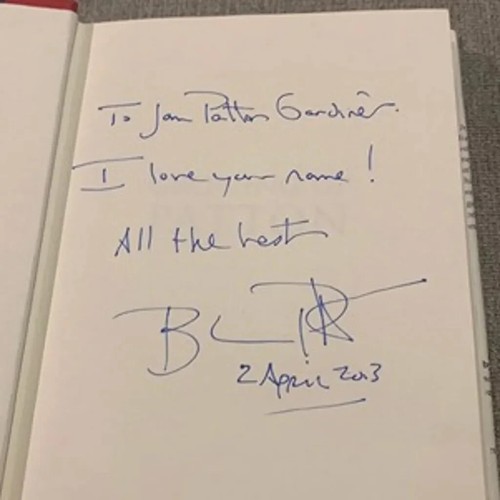 To Jan Patton Gardinêr.
I love your name!
All the best
2 April 2013